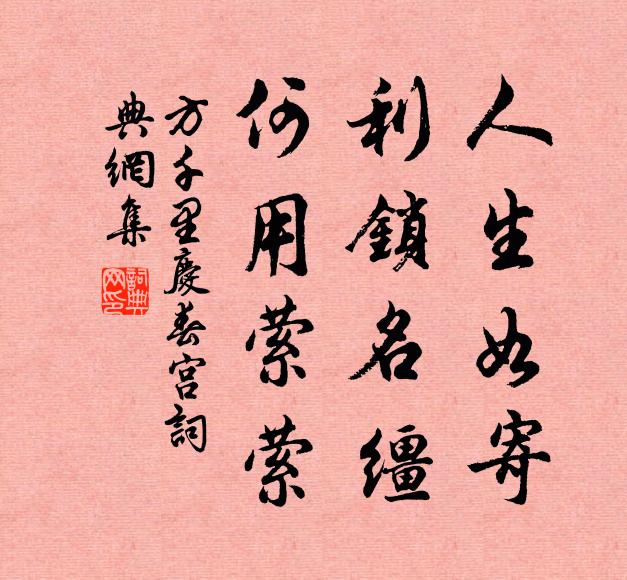 人生如寄
利鎖名繮
何用縈縈
方千里慶春宮詞
典網集
詞典網印